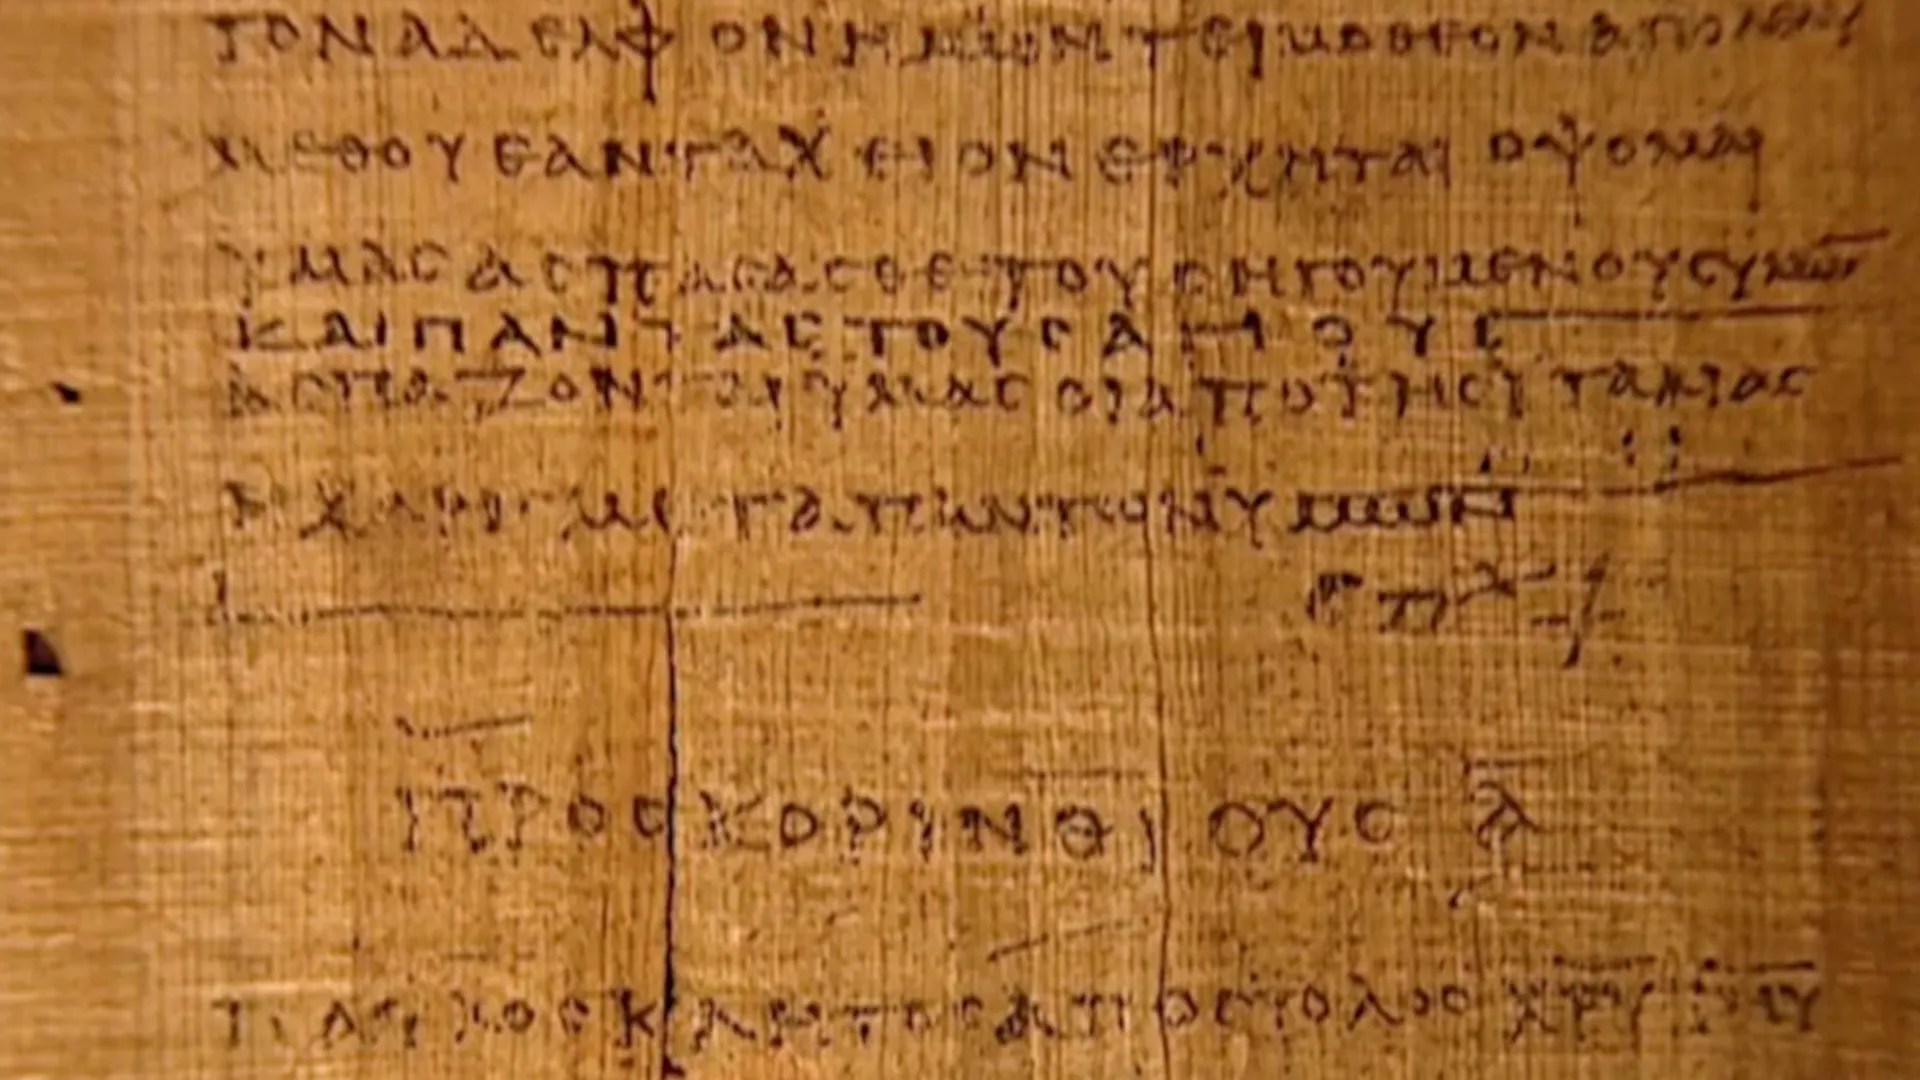 ΤΟΝΑΔΕΛΦΟΝΗΜΩΝΤΕΙΜΟΘΕΟΝ
ΜΕΘΟΥΕΑΝΤΑΧΕΙΟΝΕΡΧΗΤΑΙΟΨΟΜΑΙ
ΥΜΑϹΑϹΠΑϹΑϹΘΕΤΟΥϹΗΓΟΥΜΕΝΟΥϹΥΜΩΝ
ΚΑΙΠΑΝΤΑϹΤΟΥϹΑΓΙΟΥϹ
ΑϹΠΑΖΟΝΤΑΙΥΜΑϹΟΙΑΠΟΤΗϹΙΤΑΛΙΑϹ
ΗΧΑΡΙϹΜΕΤΑΠΑΝΤΩΝΥΜΩΝ
ΠΡΟϹΚΟΡΙΝΘΙΟΥϹ Α̅
ΠΑΥΛΟϹΚΛΗΤΟϹΑΠΟϹΤΟΛΟϹ